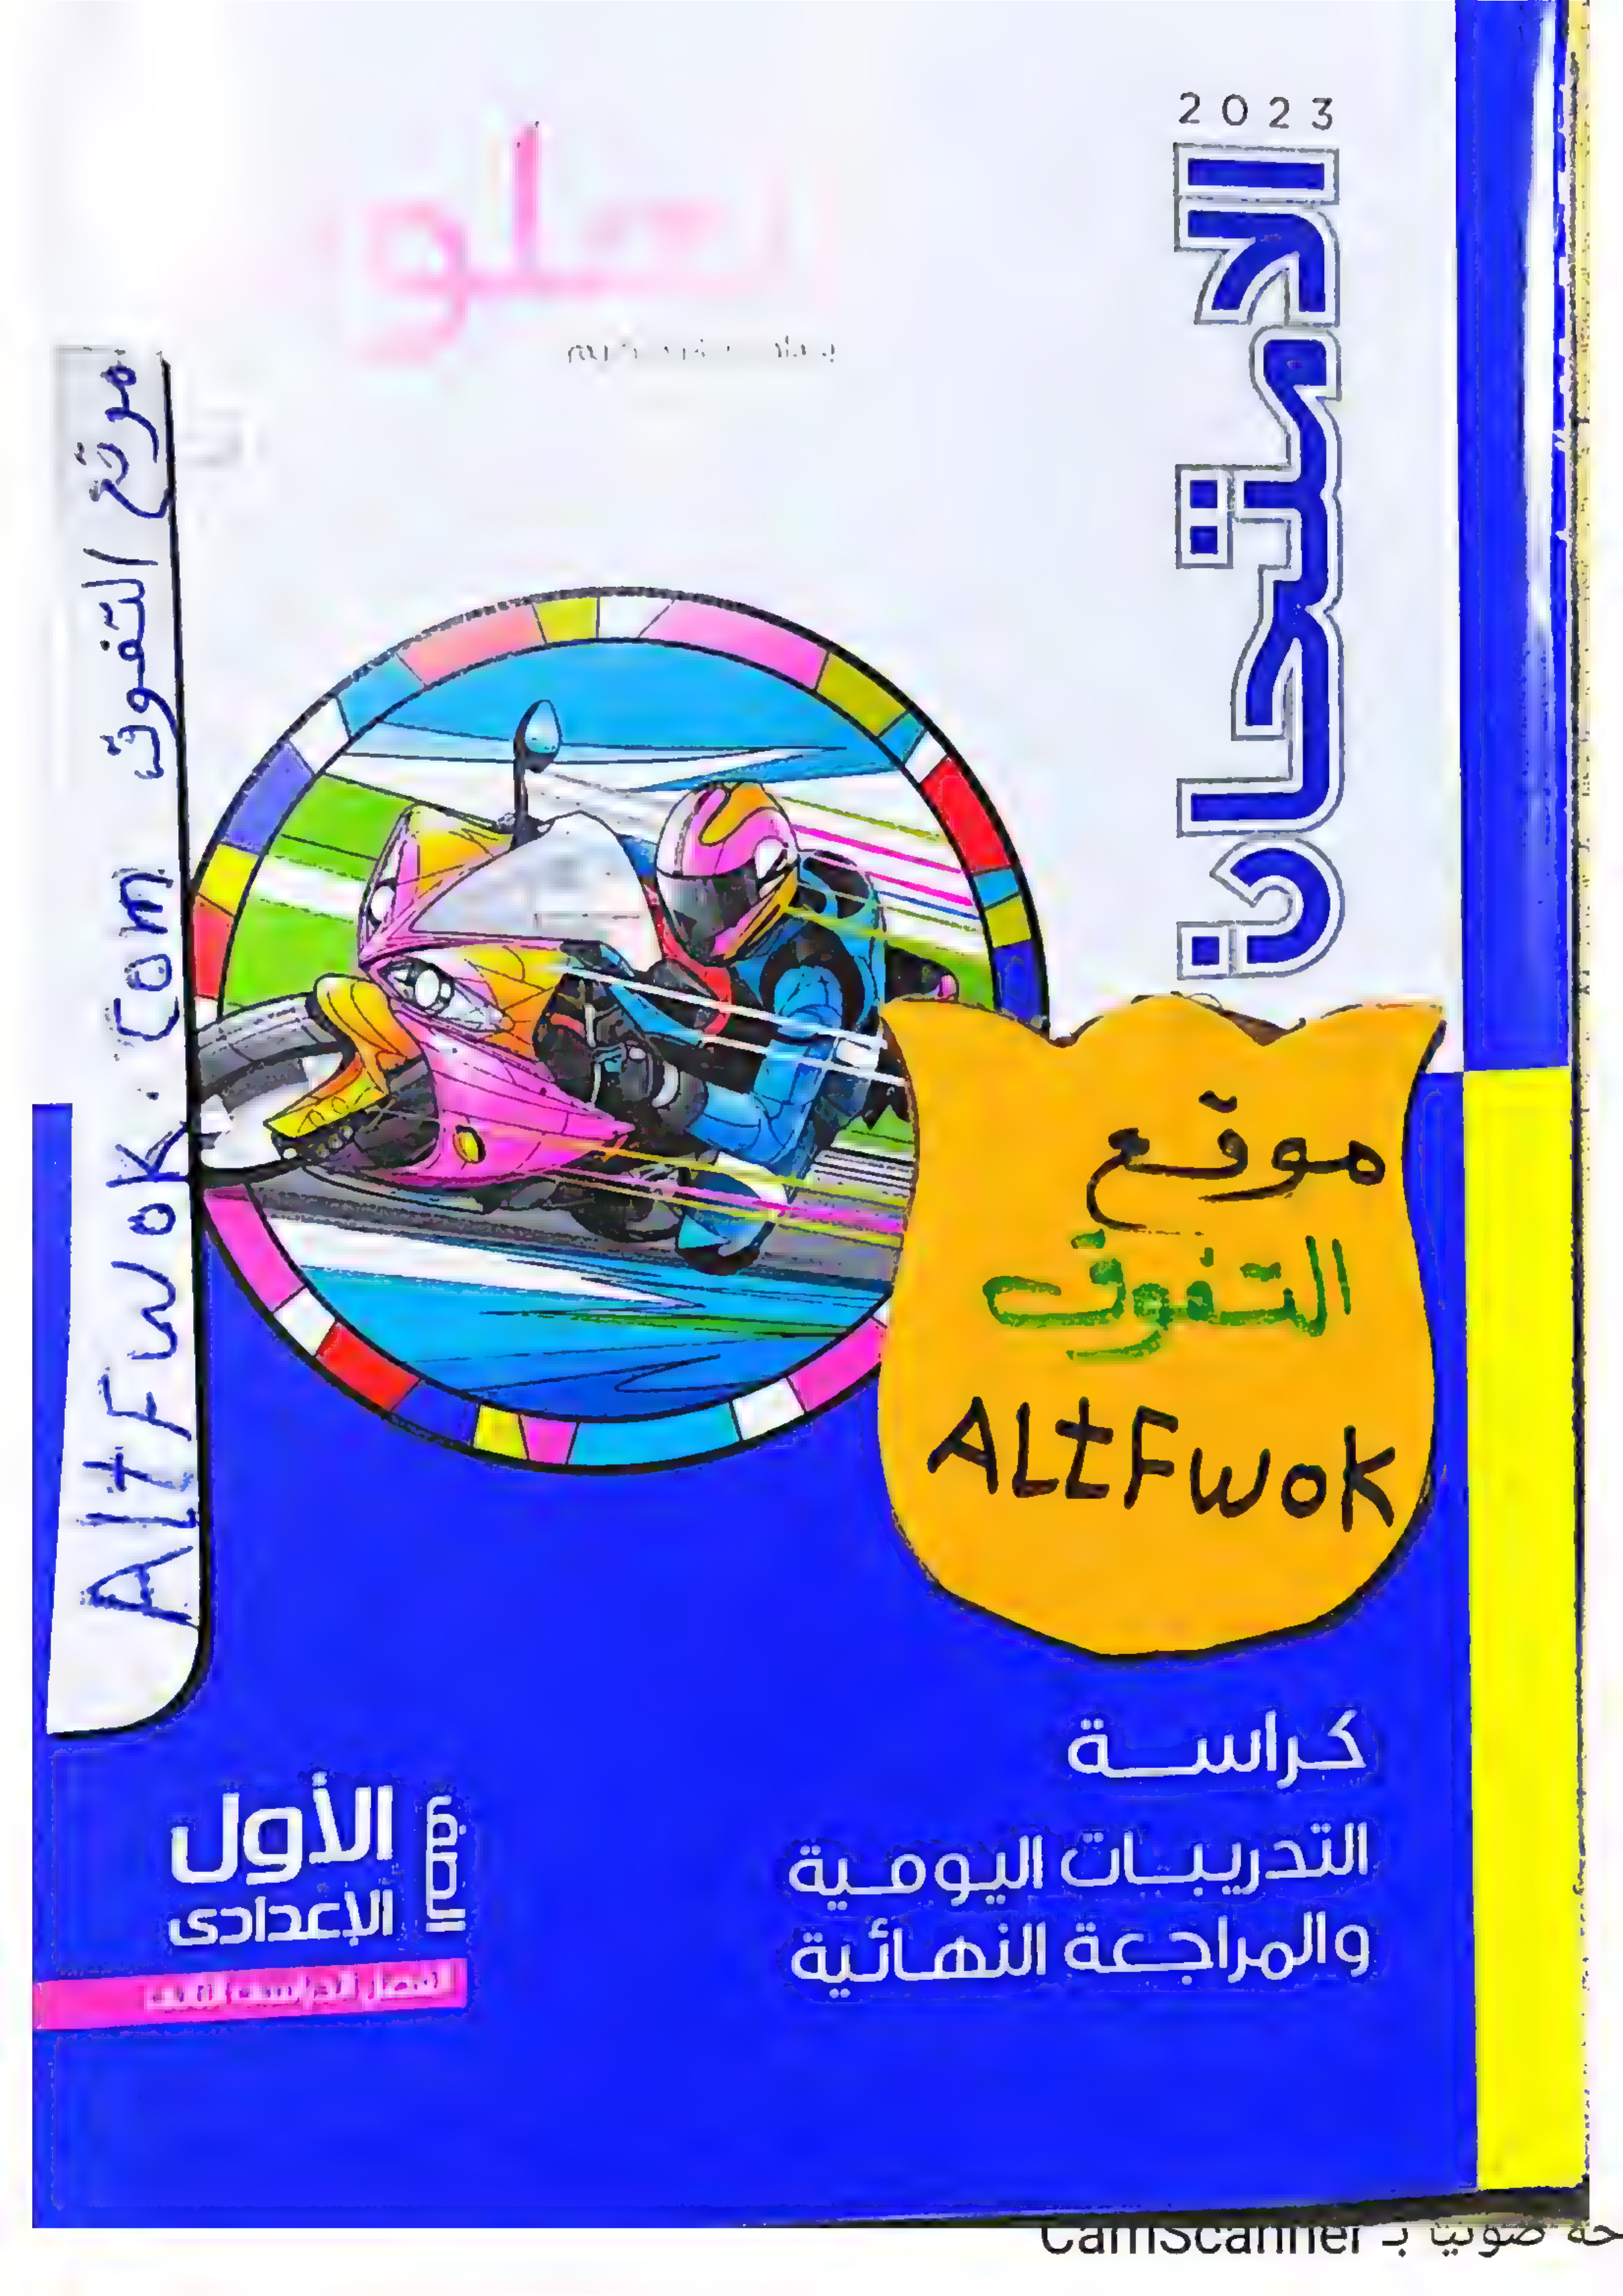 2023
الامتحان
موقع التفوق AltFwok.Com
موقع
التفوق
ALtFwok
كراسة
التدريبات اليومية
والمراجعة النهائية
الصف
الأول
الإعدادى
CamScanner